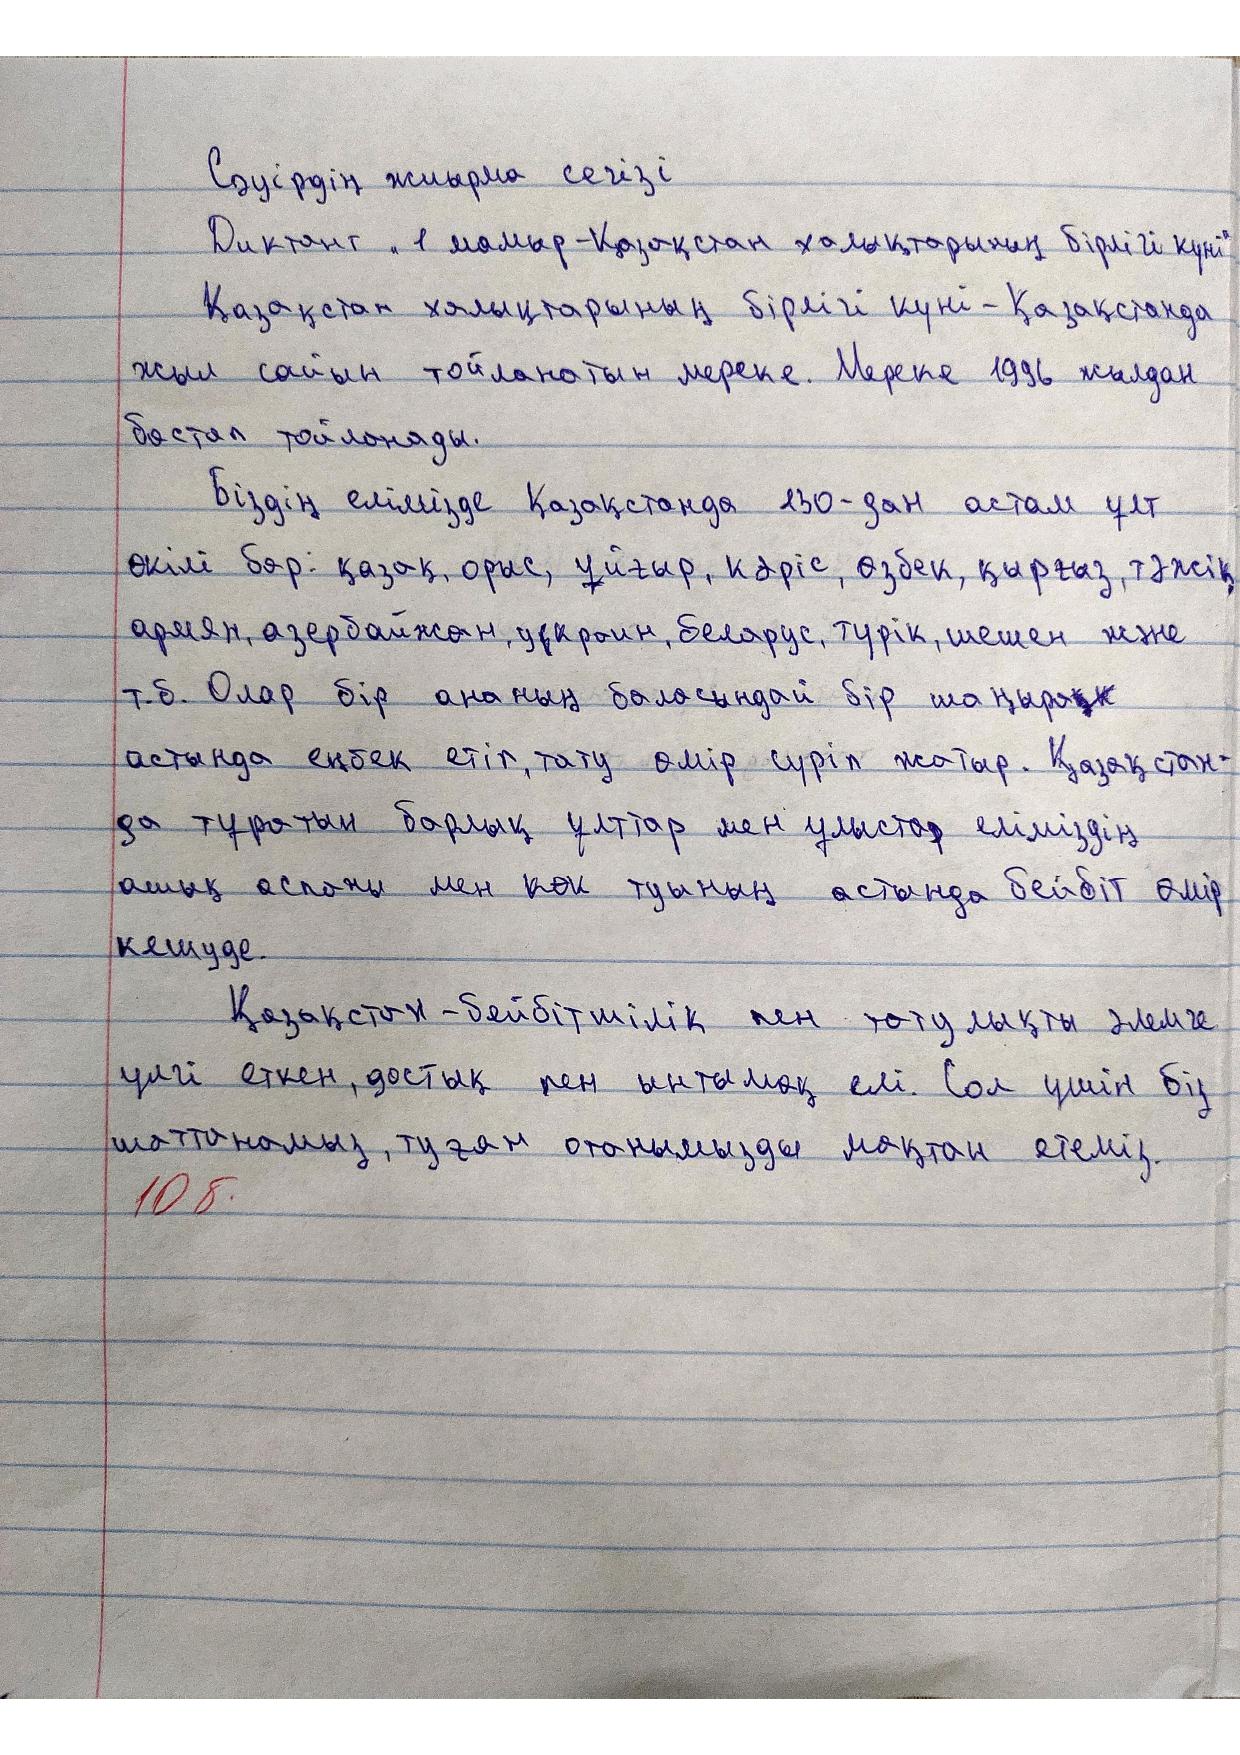 Сәуірдің жиырма сегізі
Диктант „1 мамыр-Қазақстан халықтарының бірлігі күні"
Қазақстан халықтарының бірлігі күні - Қазақстанда
жыл сайын тойланатын мереке. Мереке 1996 жылдан
бастап тойланады.
Біздің елімізде Қазақстанда 130-дан астам ұлт
өкілі бар: қазақ, орыс, ұйғыр, кәріс, өзбек, қырғыз, тәжік,
армян, азербайжан, украин, беларус, түрік, шешен және
т.б. Олар бір ананың баласындай бір шаңырақ
астында еңбек етіп, тату өмір сүріп жатыр. Қазақстан-
да тұратын барлық ұлттар мен ұлыстар еліміздің
ашық аспаны мен көк туының астында бейбіт өмір
кешуде.
Қазақстан - бейбітшілік пен татулықты әлемге
үлгі еткен, достық пен ынтымақ елі. Сол үшін біз
шаттанамыз, туған отанымызды мақтан етеміз.
10 б.